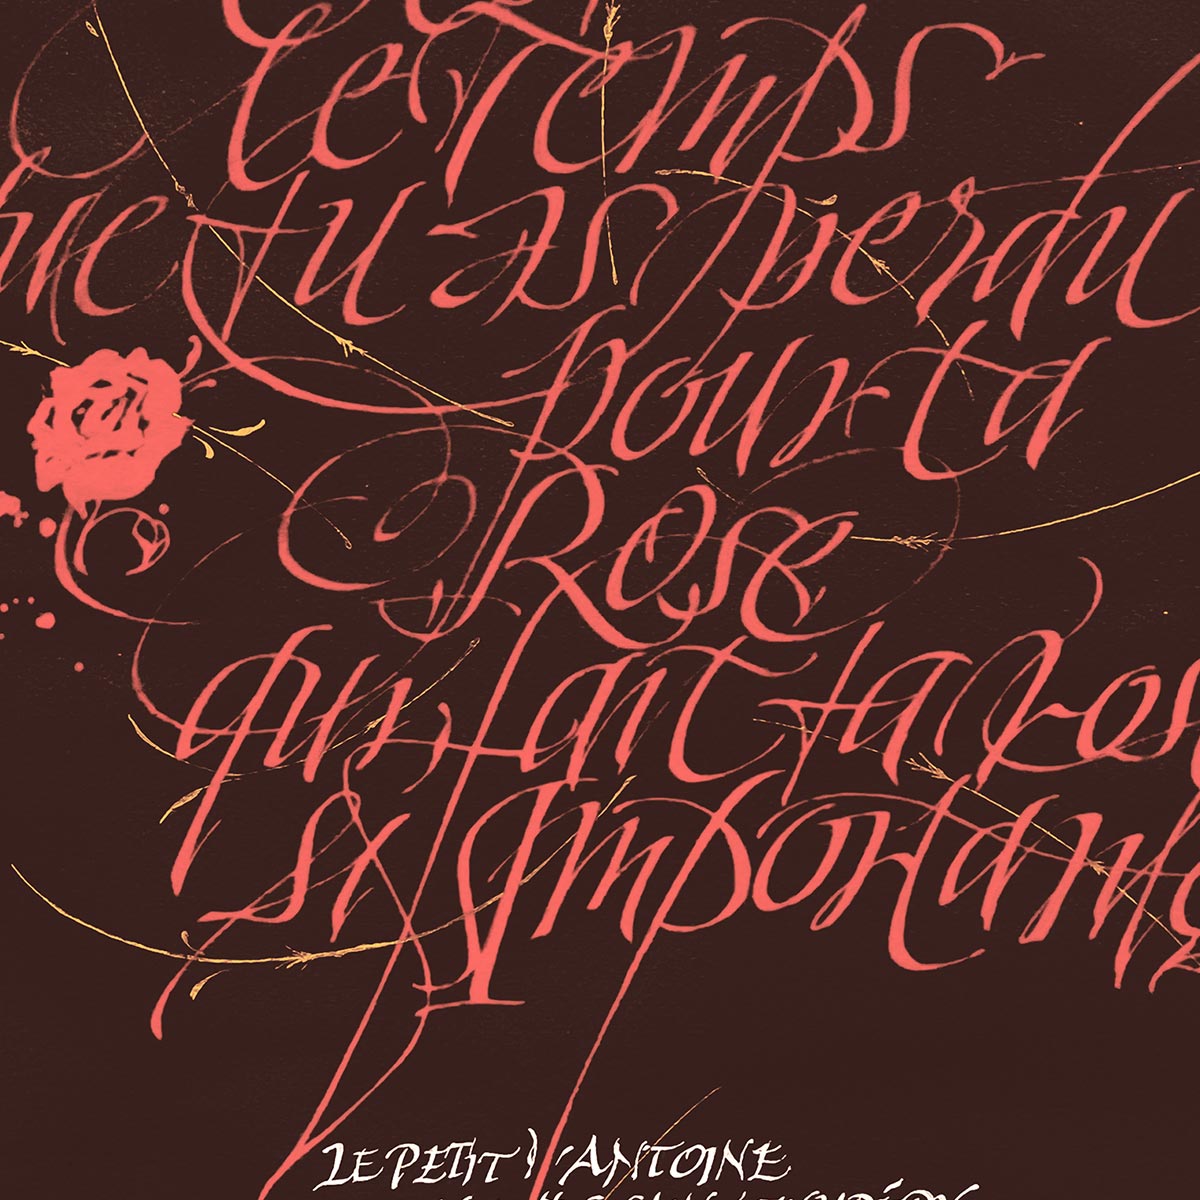 le Temps
que tu as perdu
pour ta
Rose
qui fait ta Rose
si Importante
LE PETIT
ANTOINE